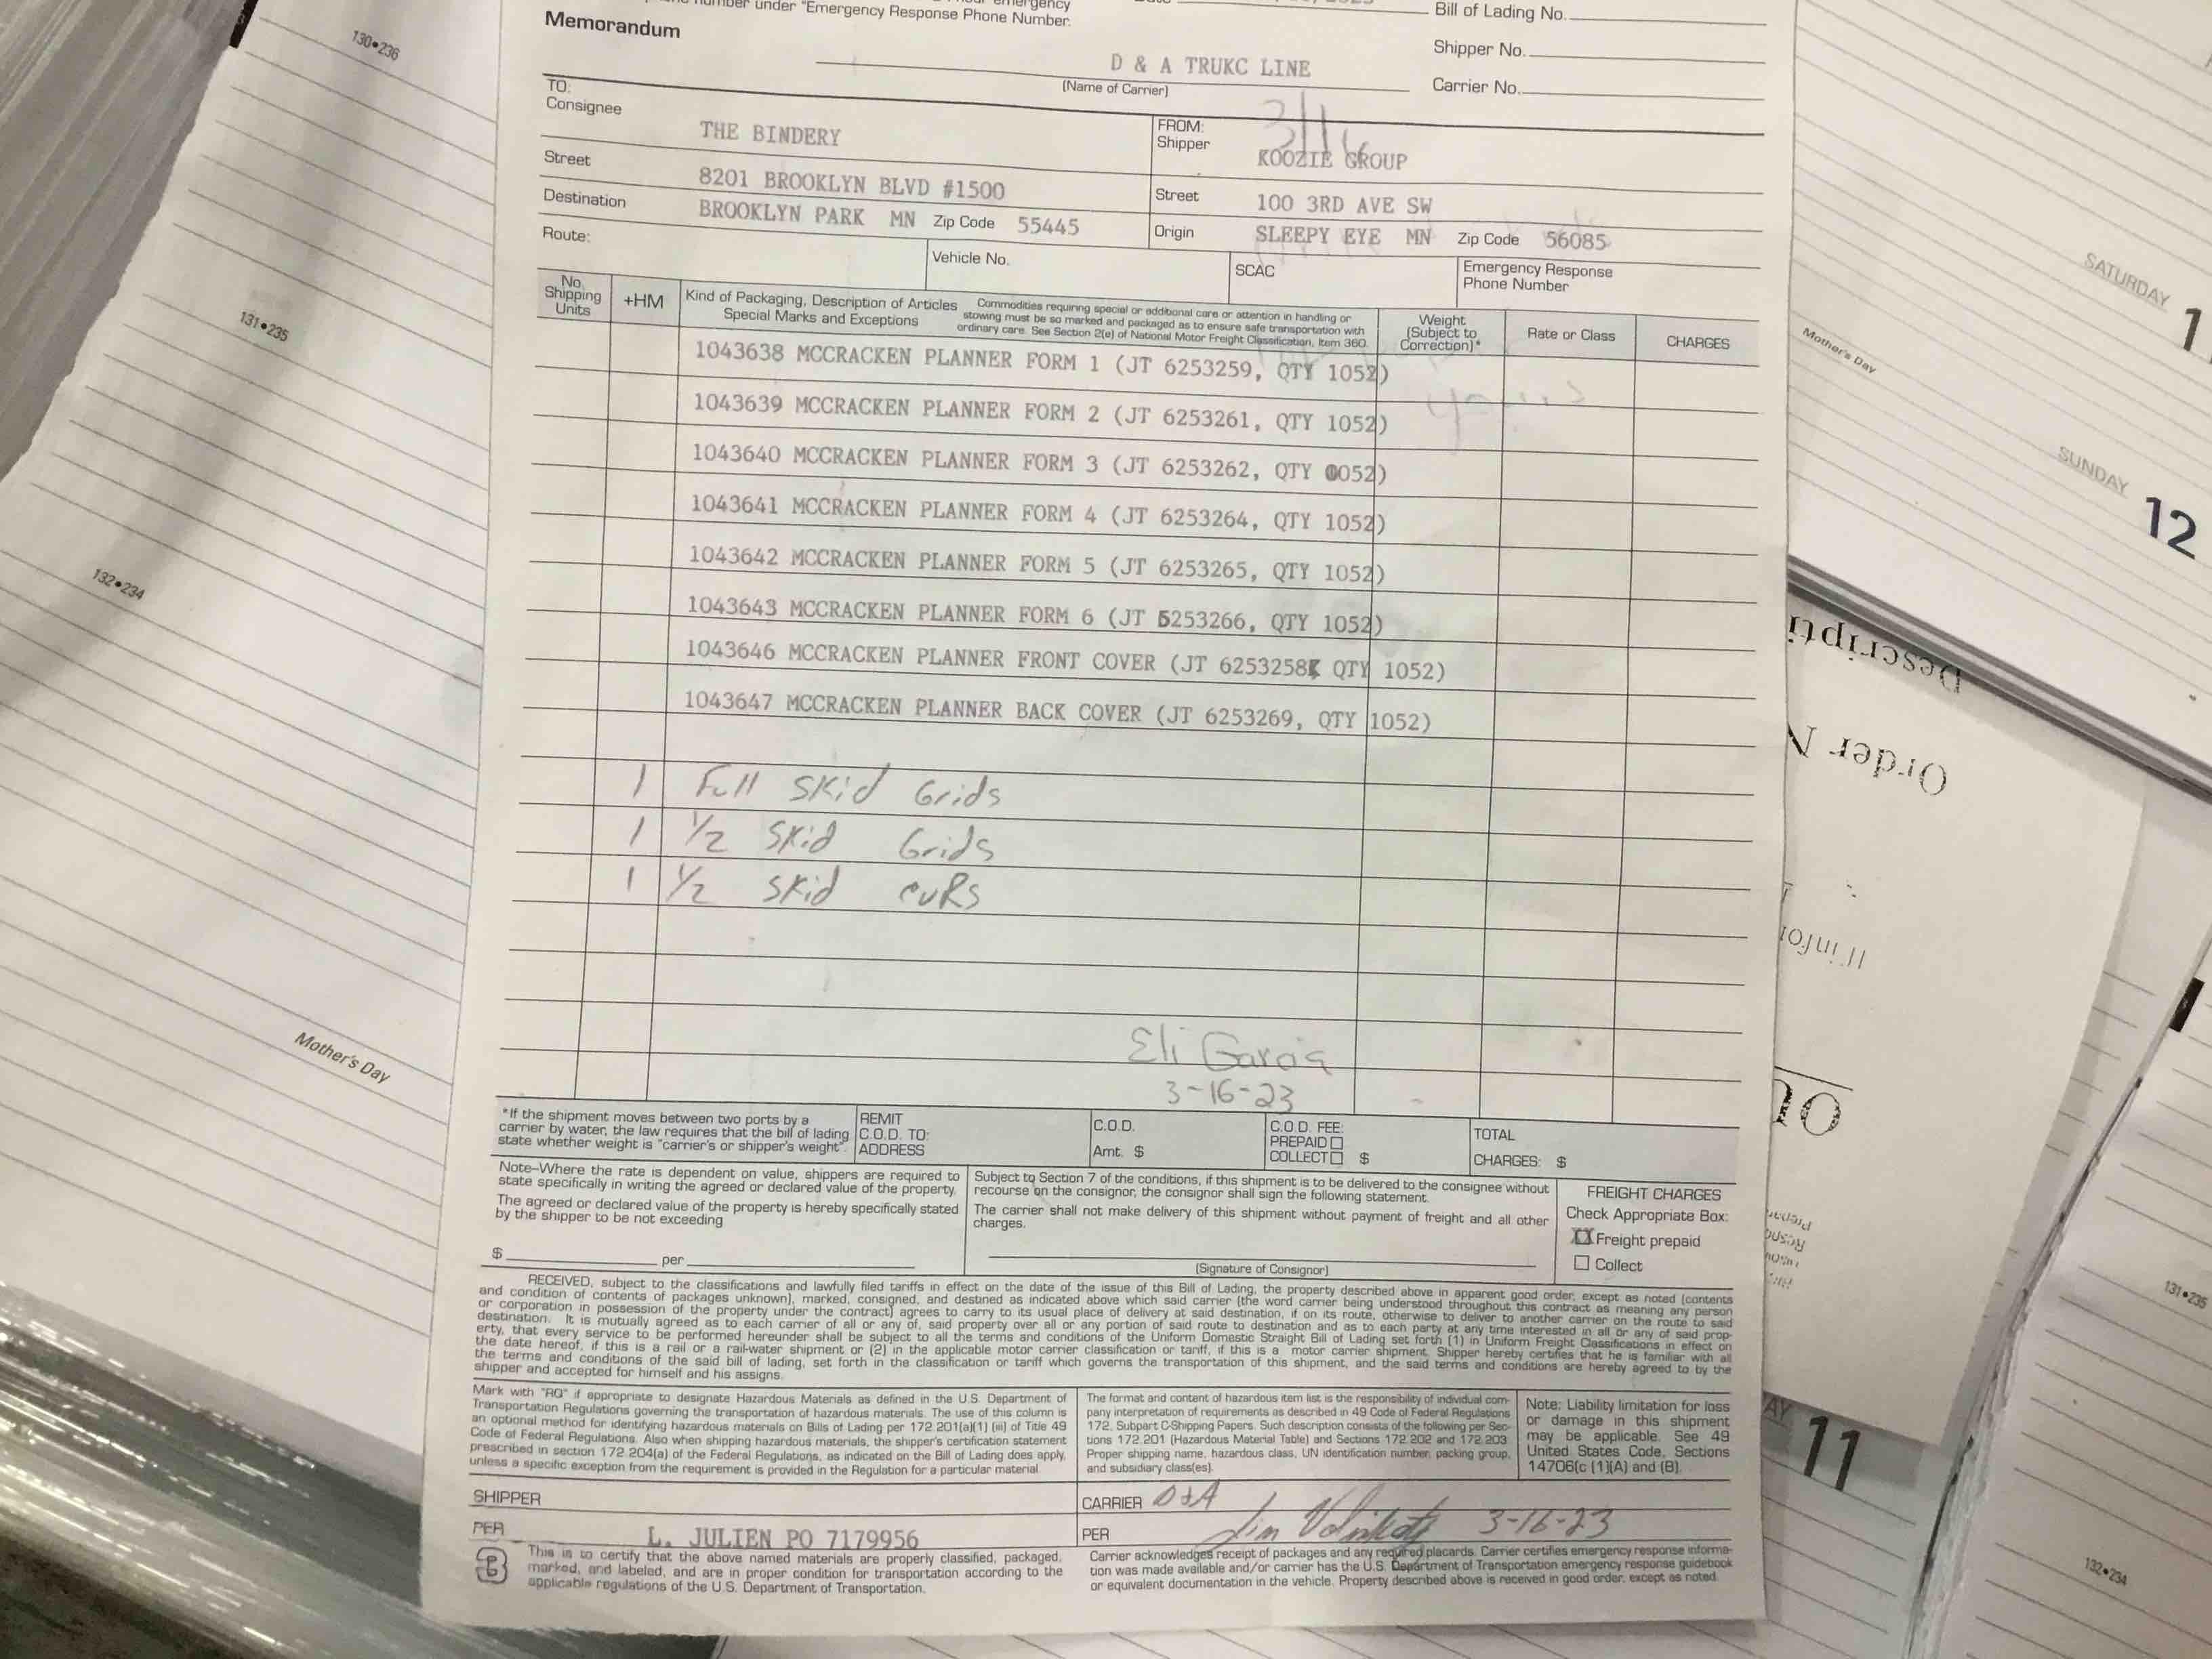 number under "Emergency Response Phone Number.
Memorandum
Bill of Lading No.
Shipper No.
D & A TRUKC LINE
(Name of Carrier)
Carrier No.
TO:
Consignee
THE BINDERY
FROM:
Shipper
KOOZIE GROUP
Street
8201 BROOKLYN BLVD #1500
Street
100 3RD AVE SW
Destination
BROOKLYN PARK MN Zip Code 55445
Origin
SLEEPY EYE MN Zip Code 56085
Route:
Vehicle No.
SCAC
Emergency Response
Phone Number
No.
Shipping
Units
+HM
Kind of Packaging, Description of Articles
Special Marks and Exceptions
Commodities requiring special or additional care or attention in handling or
stowing must be so marked and packaged as to ensure safe transportation with
ordinary care. See Section 2(e) of National Motor Freight Classification, Item 360.
Weight
(Subject to
Correction)*
Rate or Class
CHARGES
1043638 MCCRACKEN PLANNER FORM 1 (JT 6253259, QTY 1052)
1043639 MCCRACKEN PLANNER FORM 2 (JT 6253261, QTY 1052)
1043640 MCCRACKEN PLANNER FORM 3 (JT 6253262, QTY 0052)
1043641 MCCRACKEN PLANNER FORM 4 (JT 6253264, QTY 1052)
1043642 MCCRACKEN PLANNER FORM 5 (JT 6253265, QTY 1052)
1043643 MCCRACKEN PLANNER FORM 6 (JT 6253266, QTY 1052)
1043646 MCCRACKEN PLANNER FRONT COVER (JT 6253258 QTY 1052)
1043647 MCCRACKEN PLANNER BACK COVER (JT 6253269, QTY 1052)
1 Full Skid Grids
1 1/2 Skid Grids
1 1/2 Skid cvRs
Eli Garcia
3-16-23
*If the shipment moves between two ports by a
carrier by water, the law requires that the bill of lading
state whether weight is "carrier's or shipper's weight".
REMIT
C.O.D. TO:
ADDRESS
C.O.D.
Amt. $
C.O.D. FEE:
PREPAID
COLLECT $
TOTAL
CHARGES: $
Note–Where the rate is dependent on value, shippers are required to
state specifically in writing the agreed or declared value of the property.
The agreed or declared value of the property is hereby specifically stated
by the shipper to be not exceeding
$ per
Subject to Section 7 of the conditions, if this shipment is to be delivered to the consignee without
recourse on the consignor, the consignor shall sign the following statement.
The carrier shall not make delivery of this shipment without payment of freight and all other
charges.
(Signature of Consignor)
FREIGHT CHARGES
Check Appropriate Box:
XX Freight prepaid
Collect
RECEIVED, subject to the classifications and lawfully filed tariffs in effect on the date of the issue of this Bill of Lading, the property described above in apparent good order, except as noted (contents
and condition of contents of packages unknown), marked, consigned, and destined as indicated above which said carrier (the word carrier being understood throughout this contract as meaning any person
or corporation in possession of the property under the contract) agrees to carry to its usual place of delivery at said destination, if on its route, otherwise to deliver to another carrier on the route to said
destination. It is mutually agreed as to each carrier of all or any of, said property over all or any portion of said route to destination and as to each party at any time interested in all or any of said prop-
erty, that every service to be performed hereunder shall be subject to all the terms and conditions of the Uniform Domestic Straight Bill of Lading set forth (1) in Uniform Freight Classifications in effect on
the date hereof, if this is a rail or a rail-water shipment or (2) in the applicable motor carrier classification or tariff, if this is a motor carrier shipment. Shipper hereby certifies that he is familiar with all
the terms and conditions of the said bill of lading, set forth in the classification or tariff which governs the transportation of this shipment, and the said terms and conditions are hereby agreed to by the
shipper and accepted for himself and his assigns.
Mark with "RQ" if appropriate to designate Hazardous Materials as defined in the U.S. Department of
Transportation Regulations governing the transportation of hazardous materials. The use of this column is
an optional method for identifying hazardous materials on Bills of Lading per 172.201(a)(1) (iii) of Title 49
Code of Federal Regulations. Also when shipping hazardous materials, the shipper's certification statement
prescribed in section 172.204(a) of the Federal Regulations, as indicated on the Bill of Lading does apply,
unless a specific exception from the requirement is provided in the Regulation for a particular material.
The format and content of hazardous item list is the responsibility of individual com-
pany interpretation of requirements as described in 49 Code of Federal Regulations
172, Subpart C-Shipping Papers. Such description consists of the following per Sec-
tions 172.201 (Hazardous Material Table) and Sections 172.202 and 172.203
Proper shipping name, hazardous class, UN identification number, packing group,
and subsidiary class(es).
Note: Liability limitation for loss
or damage in this shipment
may be applicable. See 49
United States Code, Sections
14706(c (1)(A) and (B).
SHIPPER
CARRIER D&A
PER L. JULIEN PO 7179956
PER Jim 3-16-23
This is to certify that the above named materials are properly classified, packaged,
marked, and labeled, and are in proper condition for transportation according to the
applicable regulations of the U.S. Department of Transportation.
Carrier acknowledges receipt of packages and any required placards. Carrier certifies emergency response informa-
tion was made available and/or carrier has the U.S. Department of Transportation emergency response guidebook
or equivalent documentation in the vehicle. Property described above is received in good order, except as noted.
130•236
131•235
132•234
Mother's Day
SATURDAY
Mother's Day
SUNDAY 12
Descripti
Order N
11
131•235
132•234